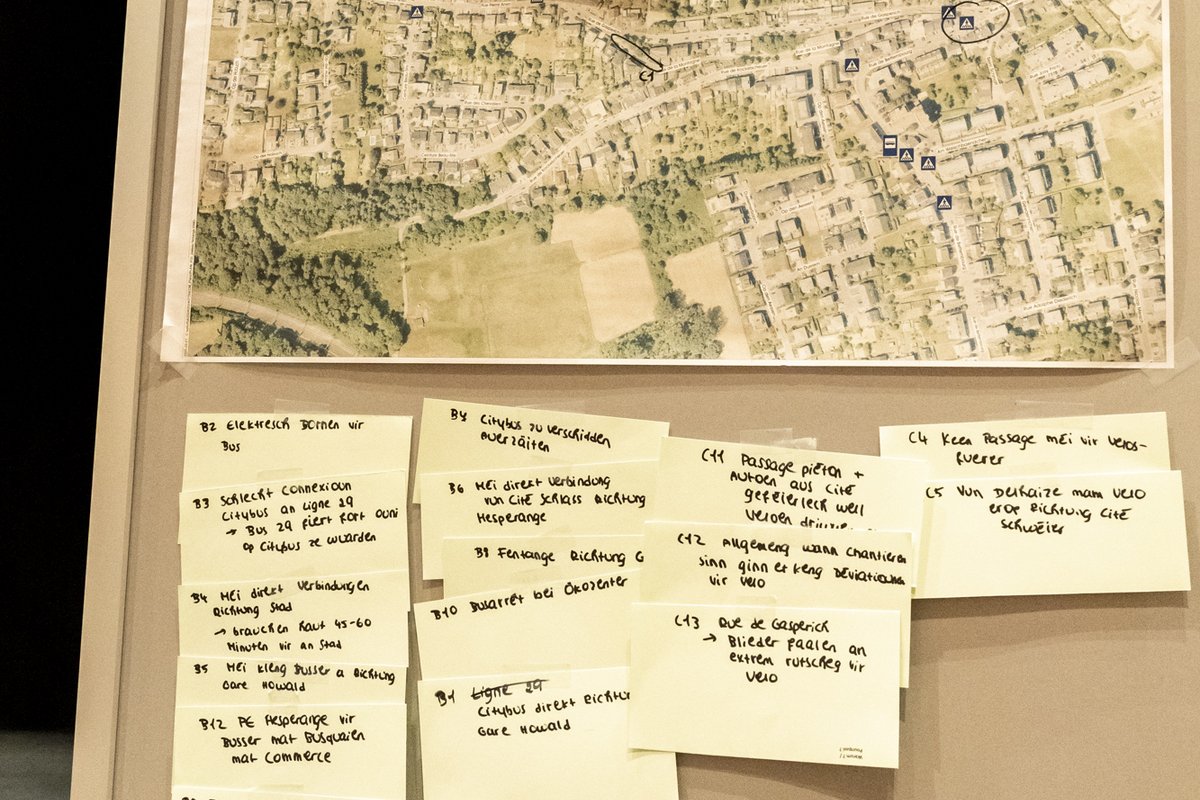 C1
B2 Elektresch Bornen vir
Bus
B3 Schlecht Connexioun
Citybus an Ligne 29
→ Bus 29 fiert fort ouni
op Citybus ze waarden
B4 Méi direkt Verbindungen
Richtung Stad
→ brauchen haut 45-60
Minuten vir an Stad
B5 Méi kleng Busser a Richtung
Gare Howald
B12 PE Hesperange vir
Busser mat Busquaien
mat Commerce
Citybus zu verschidden
Auerzäiten
B6 Méi direkt Verbindung
vun Cité Schlass Richtung
Hesperange
Fentange Richtung G
B10 Busarrêt bei Ökozenter
B1 Ligne 29
Citybus direkt Richtun
Gare Howald
C11 Passage piéton +
Autoen aus Cité
geféierlech well
Veloen
C12 Allgemeng wann Chantieren
sinn ginn et keng Déviatiounen
vir Velo
C13 Rue de Gasperich
→ Blieder faalen an
extrem rutscheg vir
Velo
Warum? /
Pourquoi?
C4 Keen Passage méi vir Velos-
fuerer
C5 Vun Delhaize mam Velo
erop Richtung Cité
Schwéier